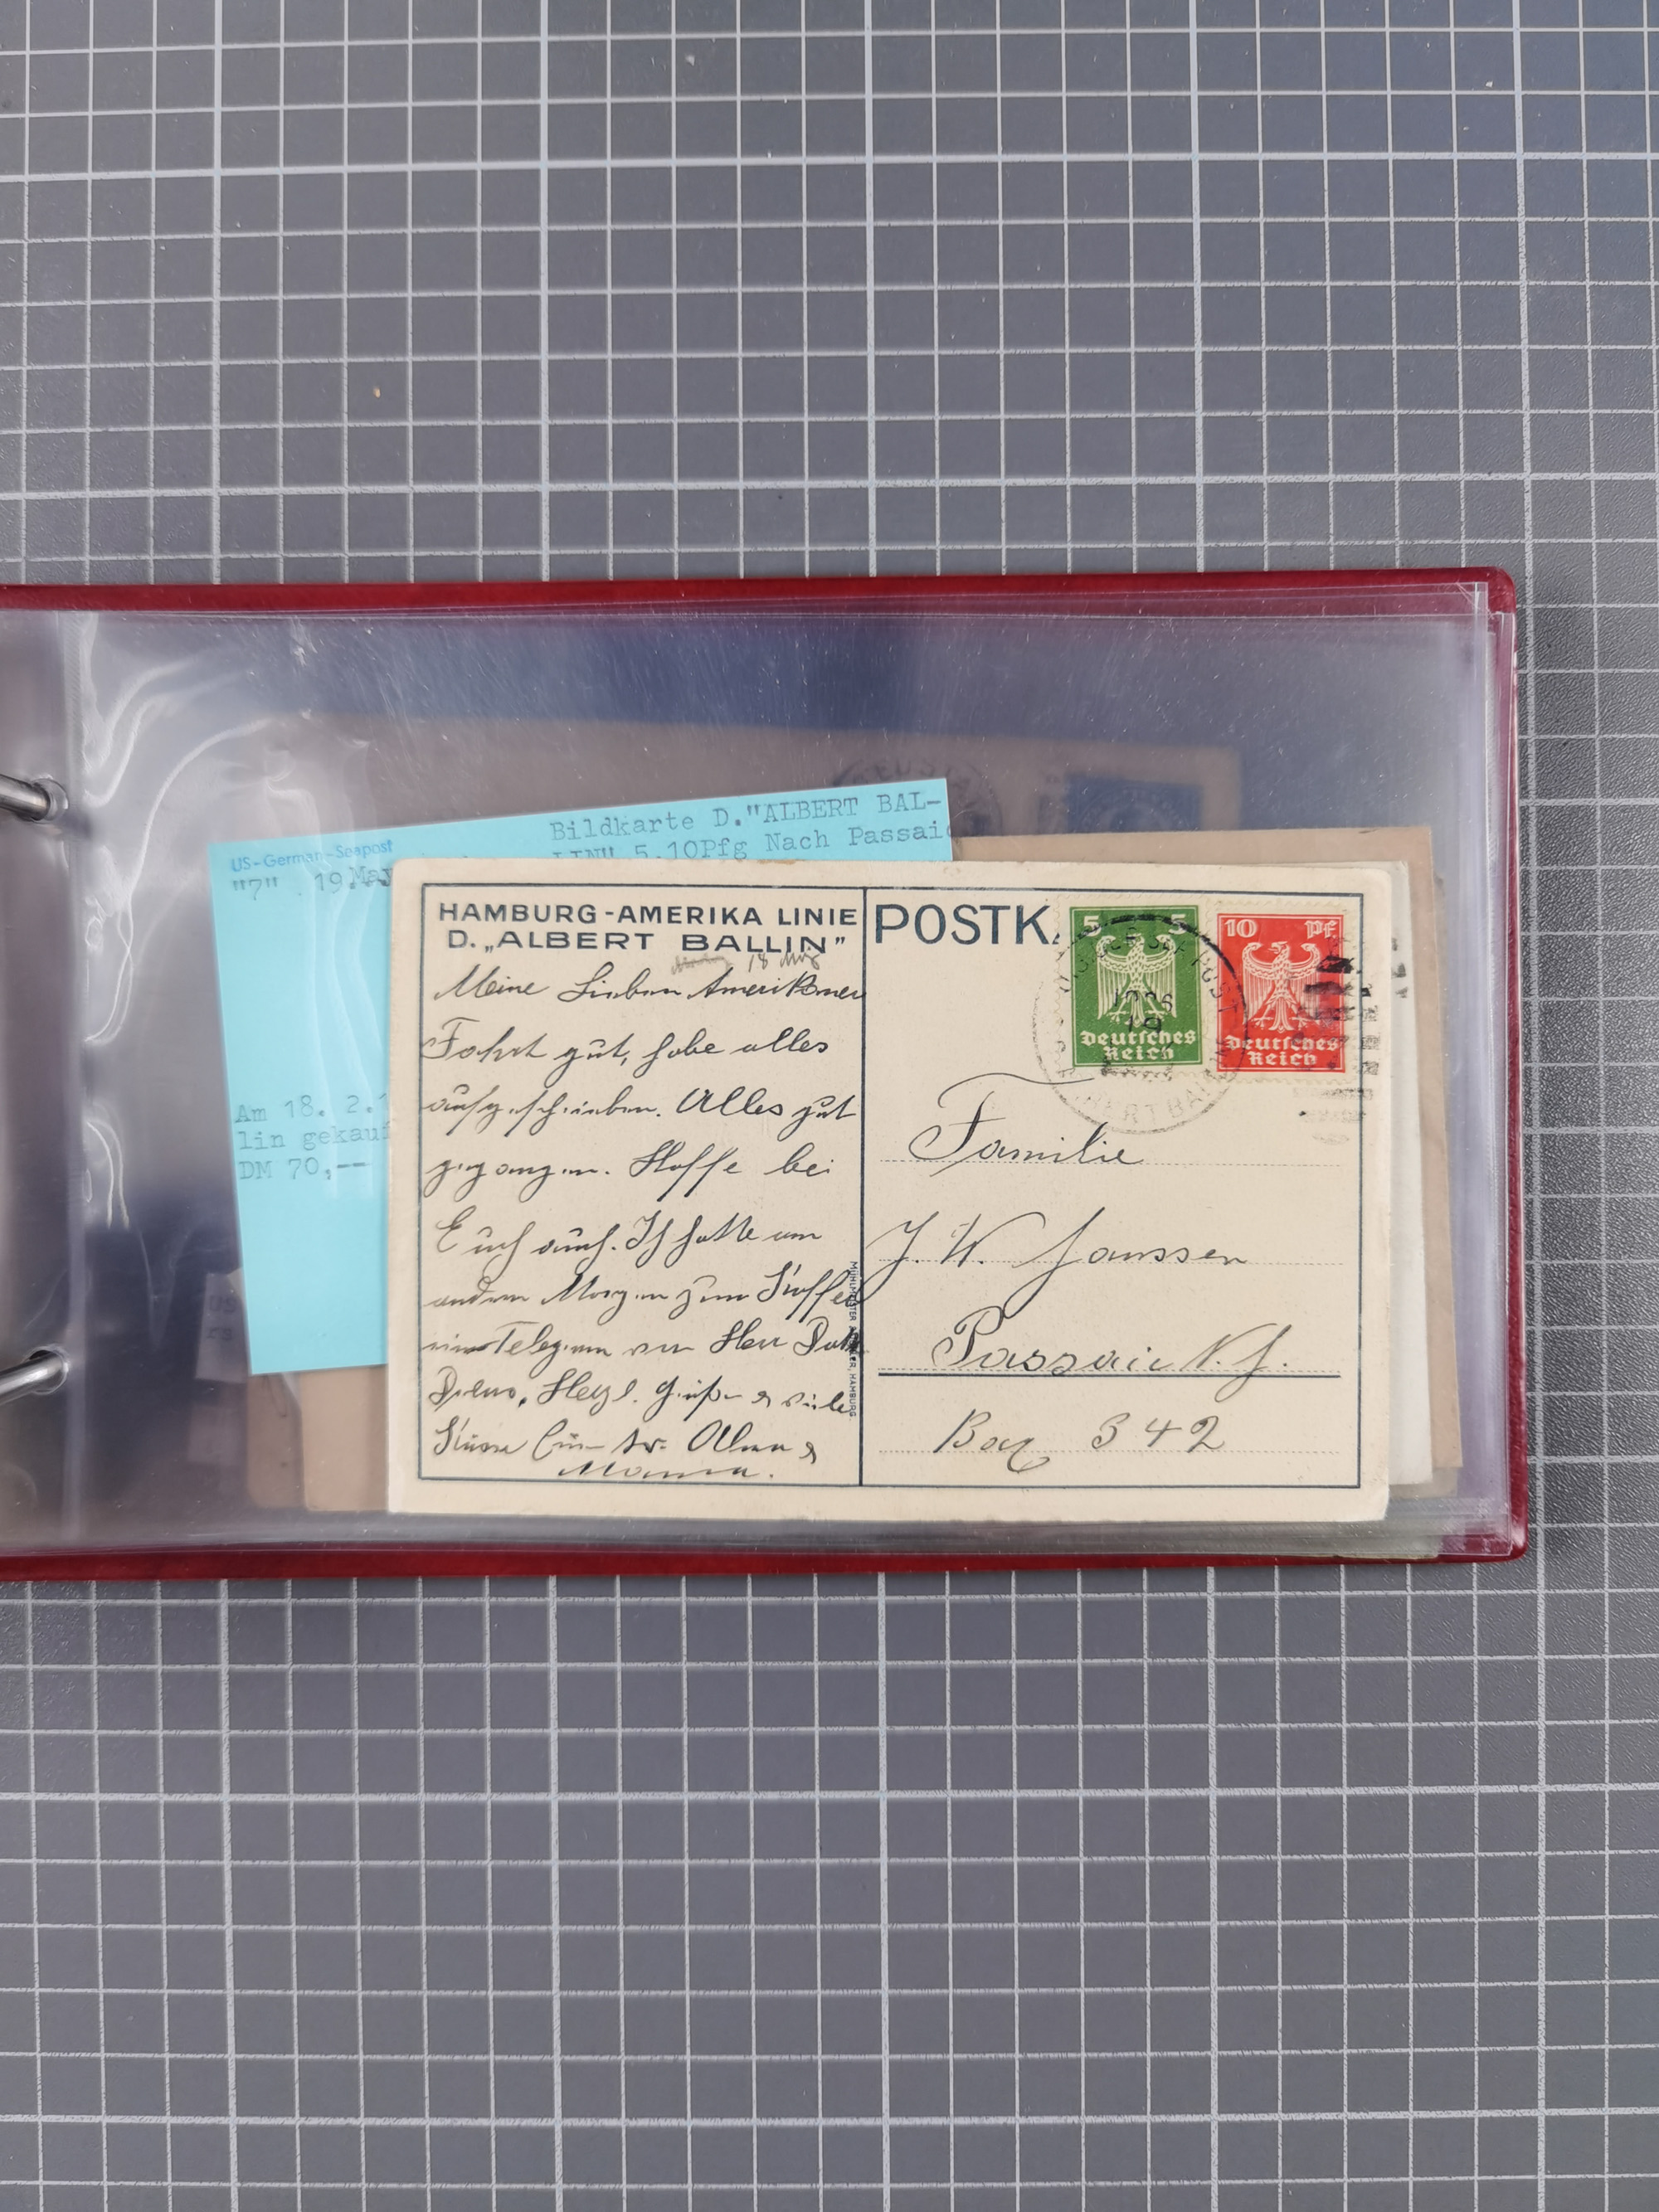 Bildkarte D."ALBERT BAL-
LIN" 5,10Pfg Nach Passaic
US-German-Seapost
"7" 19.May
Am 18. 2.
lin gekauf
DM 70,--
HAMBURG-AMERIKA LINIE
D. „ALBERT BALLIN"
18 May
Meine Lieben Amerikaner
Fahrt gut, habe alles
aufgeschrieben. Alles gut
gegangen. Hoffe bei
Euch auch. Ich hatte am
andern Morgen zum Kaffee
ein Telegramm von Herr
Herzl. Grüße & viele
Küsse
Mamma.
MÜHLMEISTER & JOHLER, HAMBURG
POSTK
5 5
Deutsches
Reich
10 Pf
Deutsches
Reich
1926
19
ALBERT BALLIN
Familie
J. W. Janssen
Passaic N. J.
Box 342